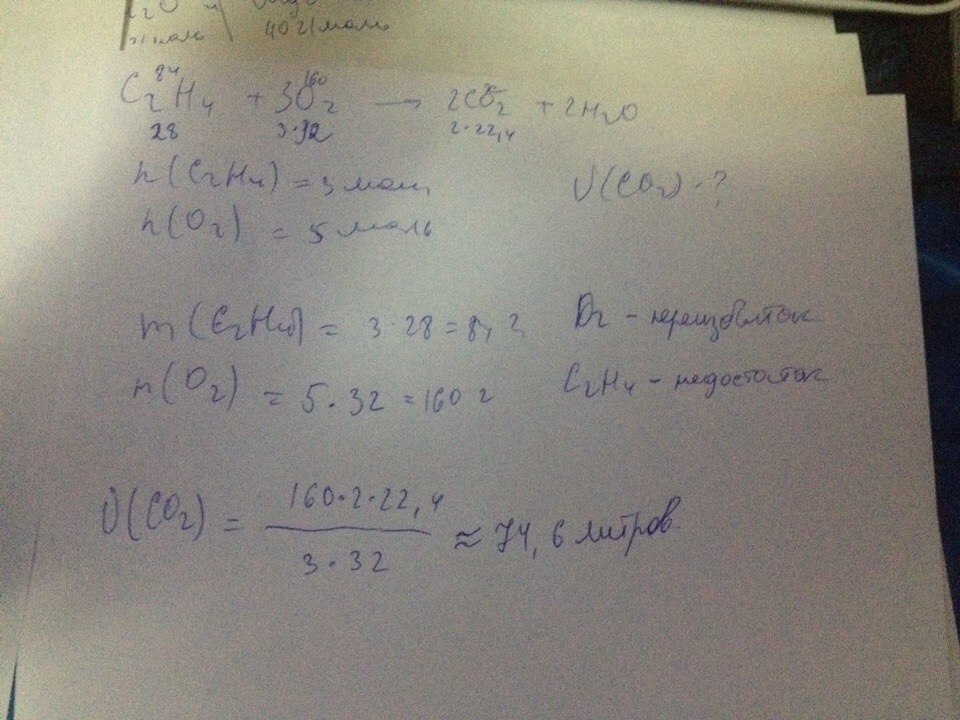 40 г/моль
84 160
C₂H₄ + 3O₂ → 2CO₂ + 2H₂O
28 3·32 2·22,4
n(C₂H₄) = 3 моль V(CO₂) - ?
n(O₂) = 5 моль
m(C₂H₄) = 3·28 = 84 г O₂ - переизбыток
m(O₂) = 5·32 = 160 г C₂H₄ - недостаток
V(CO₂) = 160·2·22,4 / 3·32 ≈ 74,6 литров